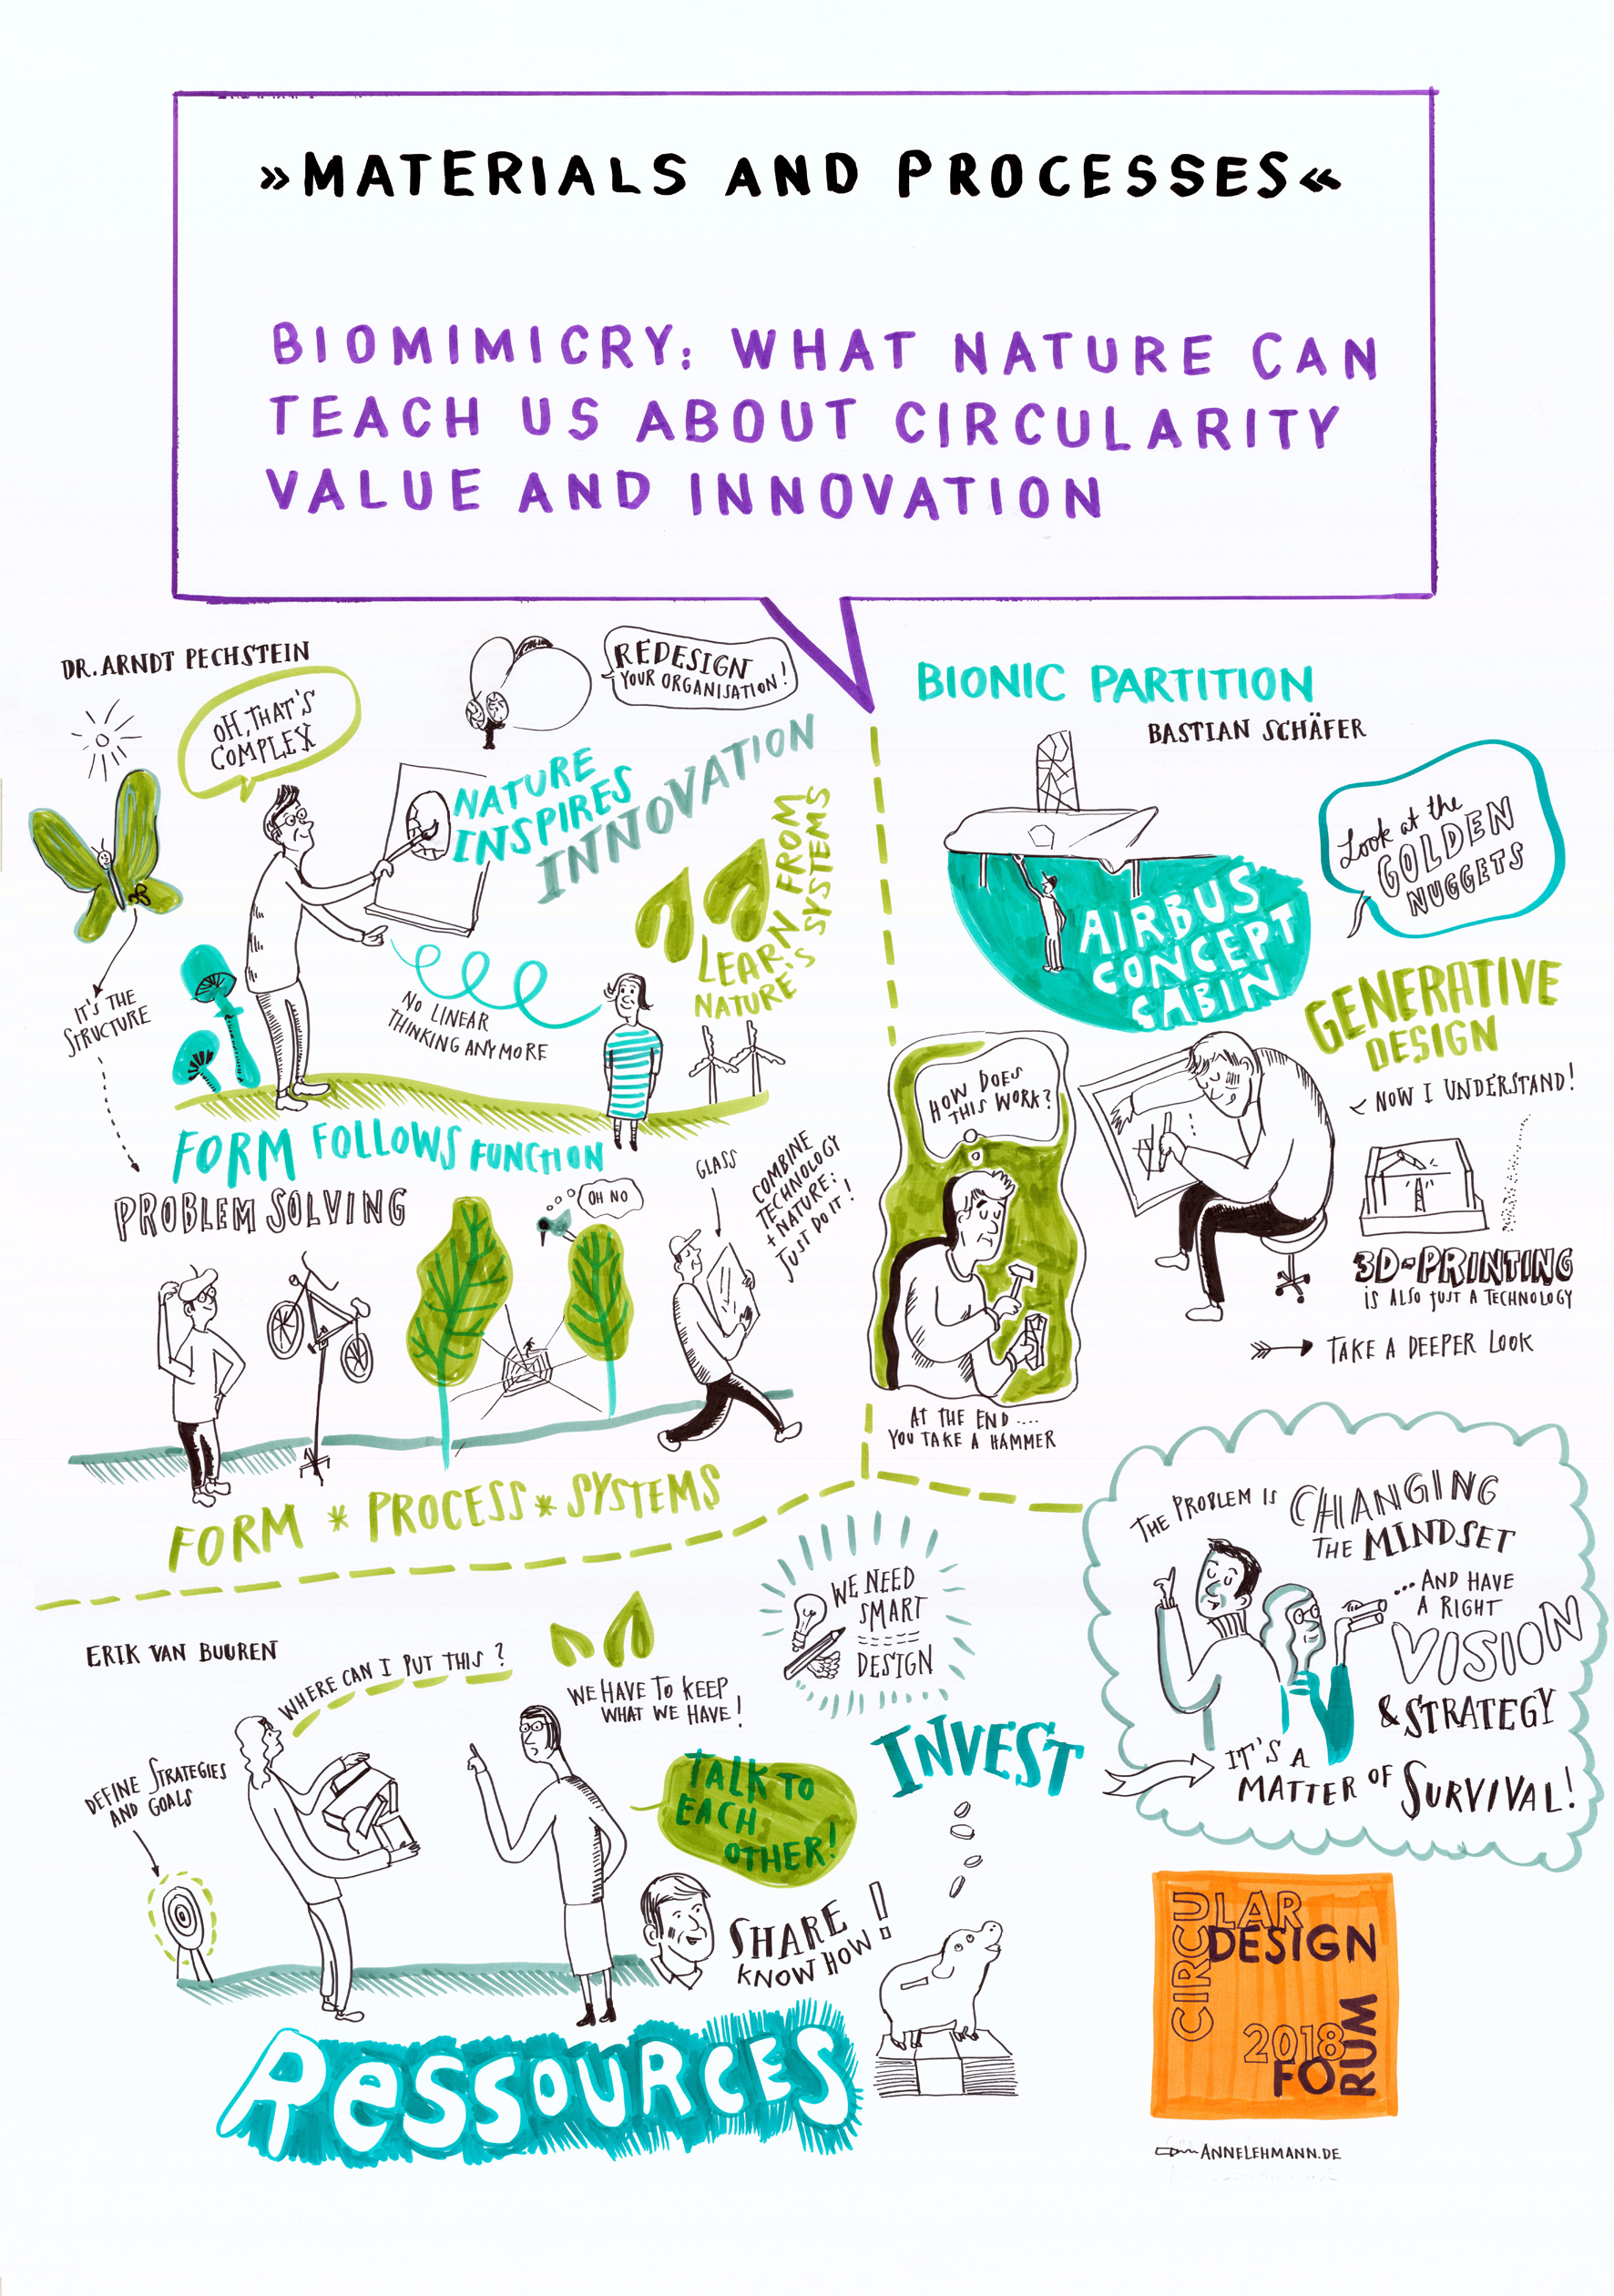 »MATERIALS AND PROCESSES«
BIOMIMICRY: WHAT NATURE CAN
TEACH US ABOUT CIRCULARITY
VALUE AND INNOVATION
DR. ARNDT PECHSTEIN
OH, THAT'S
COMPLEX
REDESIGN
YOUR ORGANISATION!
NATURE
INSPIRES
INNOVATION
LEARN FROM
NATURE'S SYSTEMS
IT'S THE
STRUCTURE
NO LINEAR
THINKING ANYMORE
FORM FOLLOWS FUNCTION
PROBLEM SOLVING
OH NO
GLASS
COMBINE
TECHNOLOGY
+ NATURE:
JUST DO IT!
FORM * PROCESS * SYSTEMS
BIONIC PARTITION
BASTIAN SCHÄFER
Look at the
GOLDEN
NUGGETS
AIRBUS
CONCEPT
CABIN
GENERATIVE
DESIGN
NOW I UNDERSTAND!
HOW DOES
THIS WORK?
3D-PRINTING
IS ALSO JUST A TECHNOLOGY
TAKE A DEEPER LOOK
AT THE END ....
YOU TAKE A HAMMER
THE PROBLEM IS CHANGING
THE MINDSET
...AND HAVE
A RIGHT
VISION
& STRATEGY
IT'S A
MATTER OF SURVIVAL!
ERIK VAN BUUREN
WHERE CAN I PUT THIS?
WE HAVE TO KEEP
WHAT WE HAVE!
WE NEED
SMART
DESIGN
DEFINE STRATEGIES
AND GOALS
TALK TO
EACH
OTHER!
INVEST
SHARE
KNOW HOW!
RESSOURCES
CIRCULAR
DESIGN
2018
FORUM
ANNELEHMANN.DE